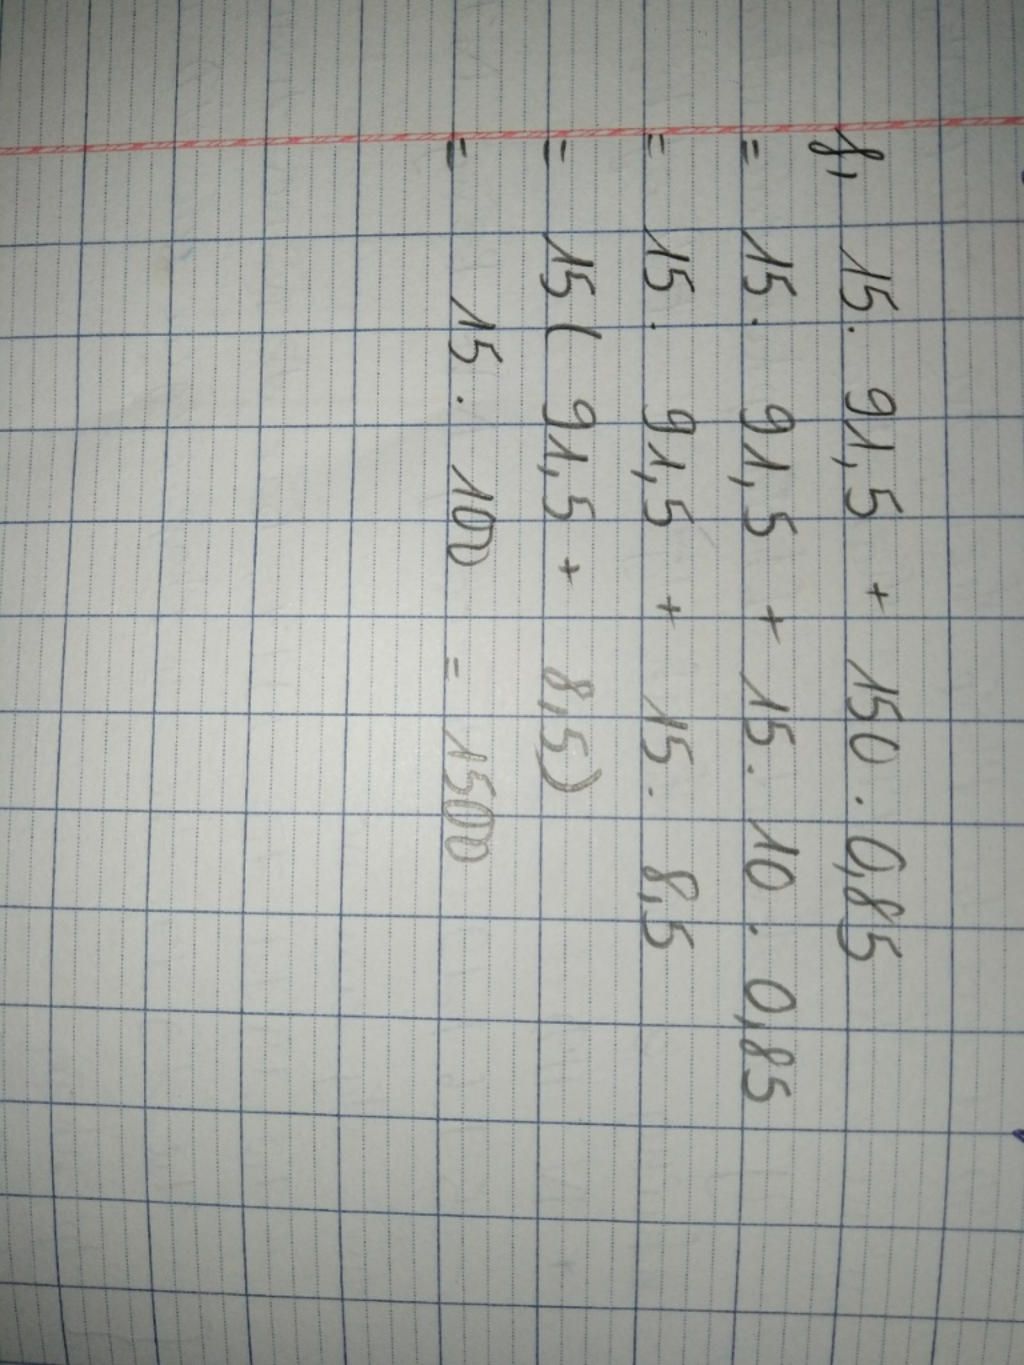 f, 15. 91,5 + 150 . 0,85
= 15. 91,5 + 15. 10 . 0,85
= 15. 91,5 + 15. 8,5
= 15( 91,5 + 8,5)
= 15. 100 = 1500